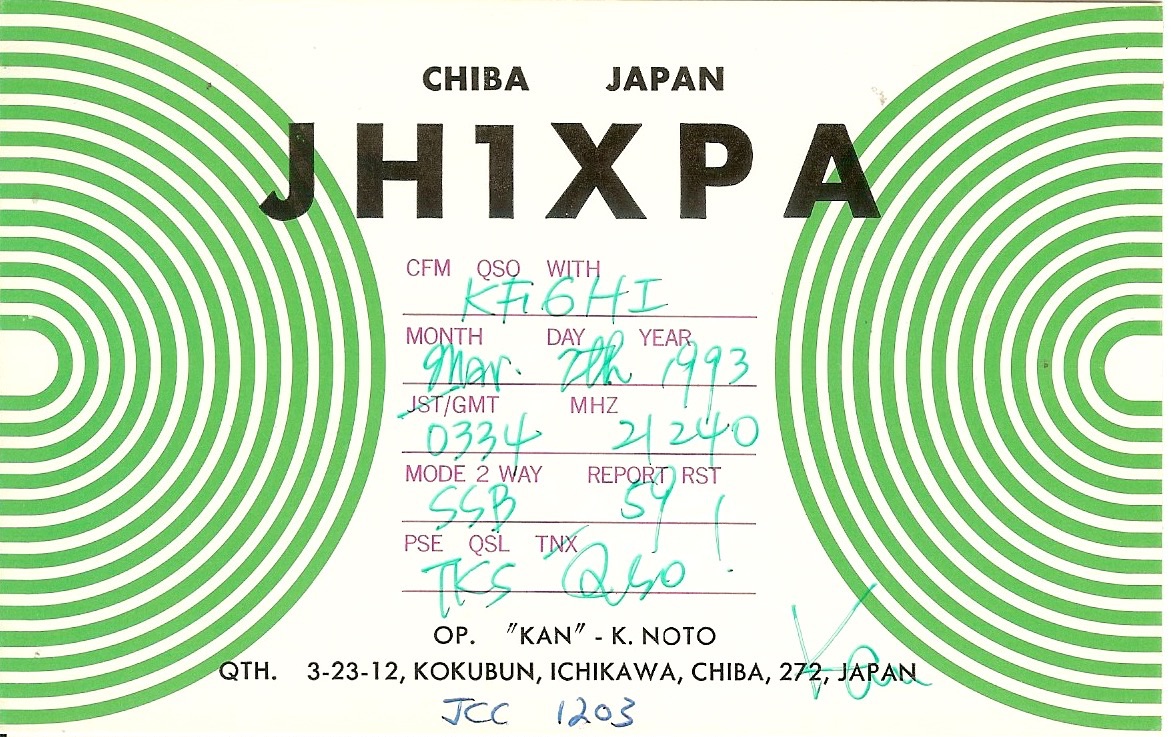 CHIBA JAPAN
JH1XPA
CFM QSO WITH
KF6HI
MONTH DAY YEAR
Mar. 7th 1993
JST/GMT MHZ
0334 21240
MODE 2 WAY REPORT RST
SSB 59
PSE QSL TNX
TKS QSO !
OP. "KAN" - K. NOTO
Kan
QTH. 3-23-12, KOKUBUN, ICHIKAWA, CHIBA, 272, JAPAN
JCC 1203